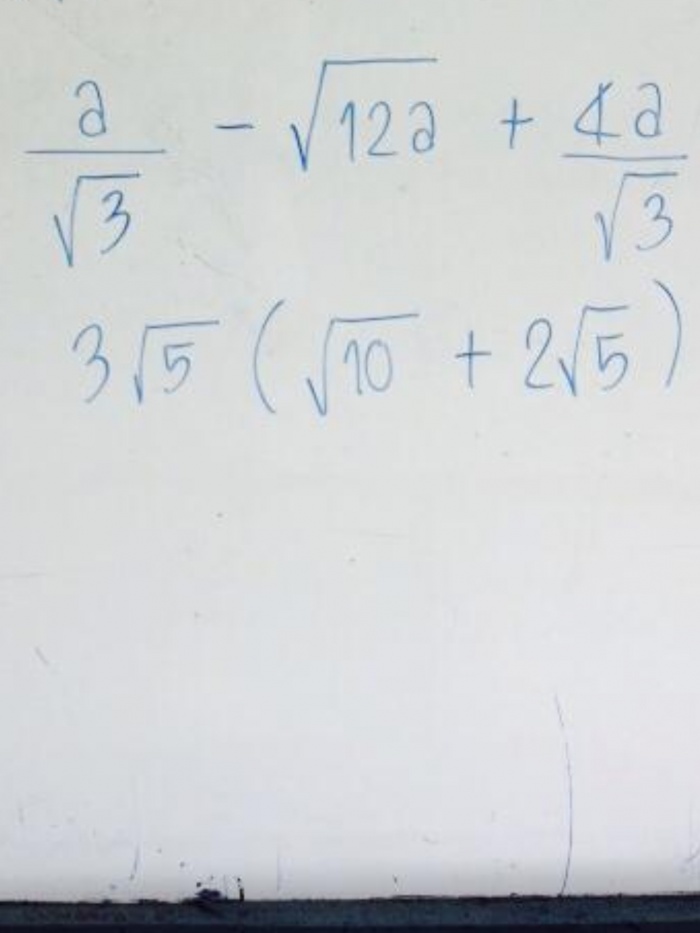 a/√3 - √12a + 4a/√3
3√5 (√10 + 2√5)